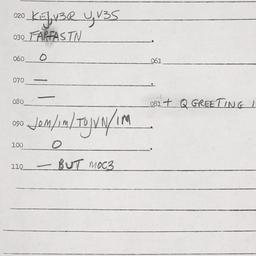 020 KELV3R UJV3S
030 FARFASTN
060 O 061
070 —
080 — 081 + Q GREETING
090 JOM/IM/TUJVN/IM
100 O
110 — BUT MOC3